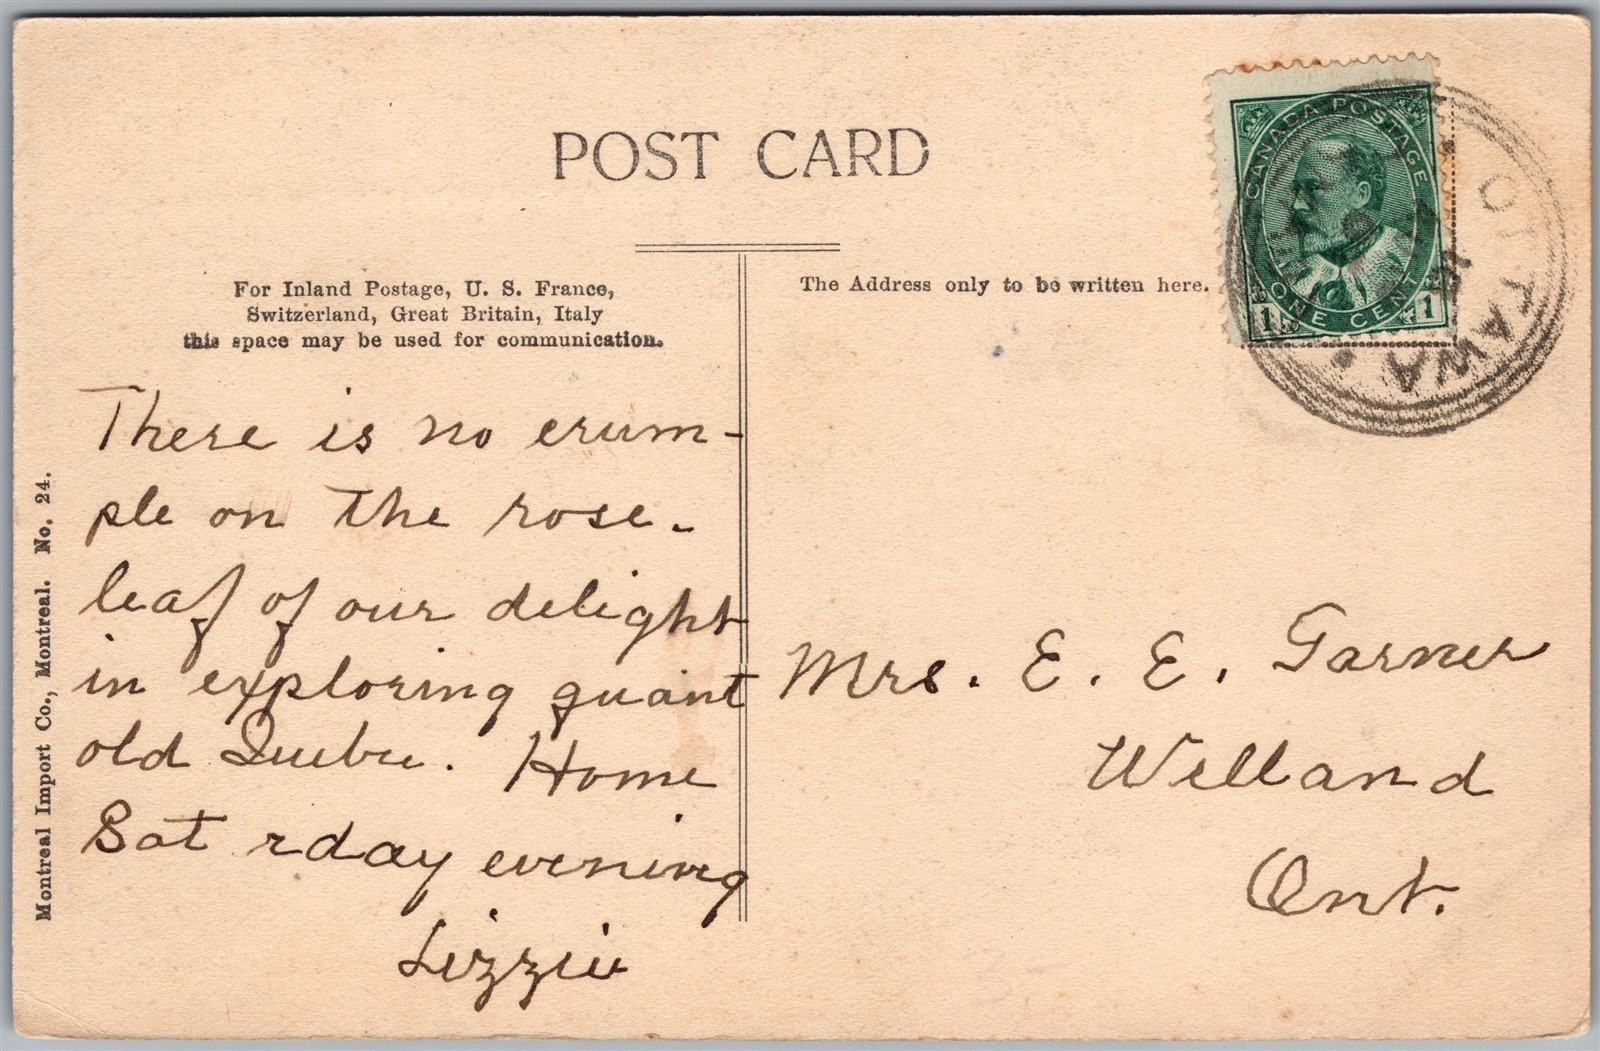 POST CARD
For Inland Postage, U. S. France,
Switzerland, Great Britain, Italy
this space may be used for communication.
The Address only to be written here.
CANADA POSTAGE
ONE CENT
1 1
OTTAWA
There is no crum-
ple on the rose-
leaf of our delight
in exploring quant
old Quebec. Home
Sat rday evening
Lizzie
Mrs. E. E. Garner
Welland
Ont.
Montreal Import Co., Montreal. No. 24.